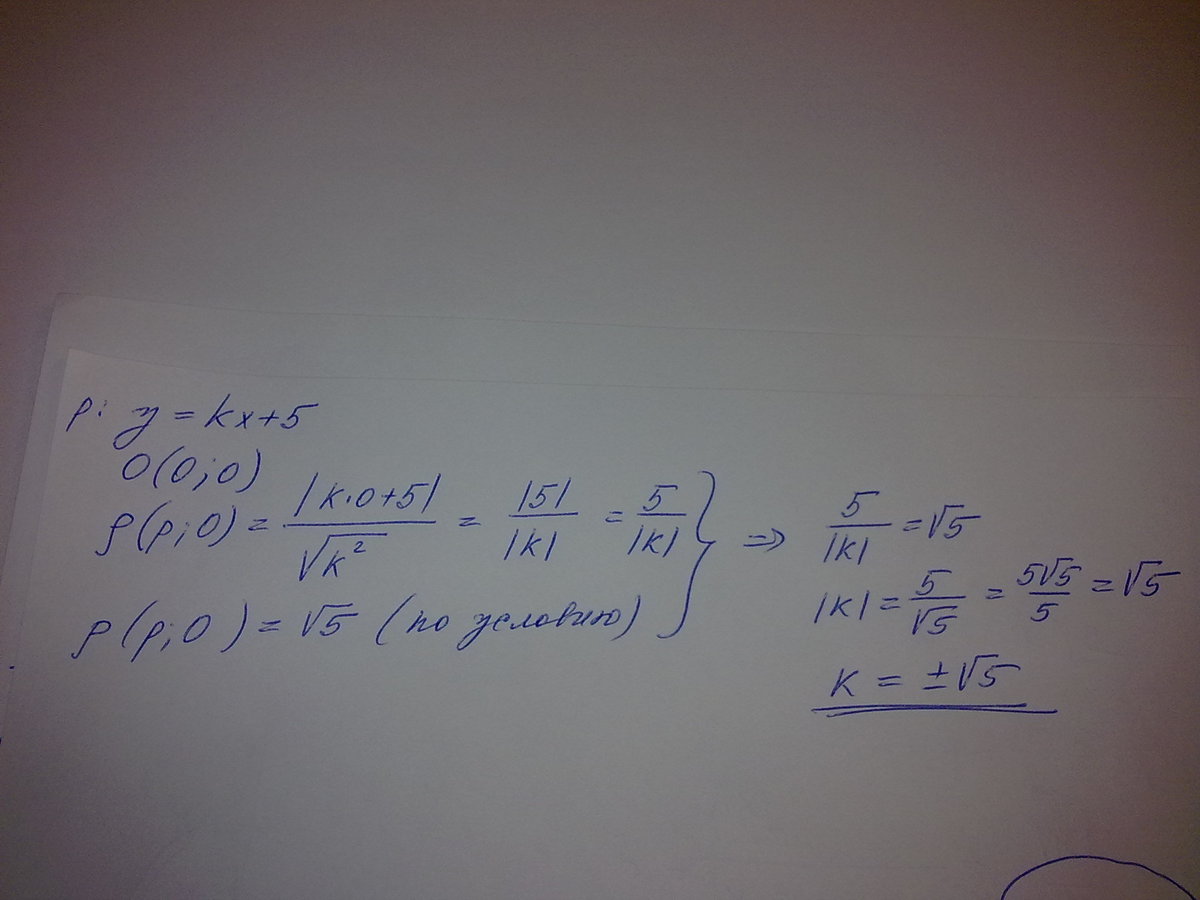 p: y = kx+5
O(0;0)
ρ(p;O) = |k·0+5| / √k² = |5| / |k| = 5 / |k|
ρ(p;O) = √5 (по условию)
⇒ 5 / |k| = √5
|k| = 5 / √5 = 5√5 / 5 = √5
k = ±√5